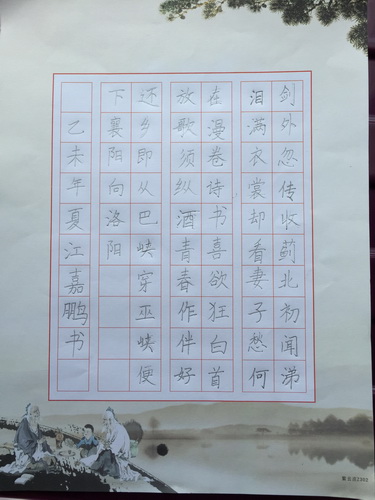 剑外忽传收蓟北初闻涕
泪满衣裳却看妻子愁何
在漫卷诗书喜欲狂白首
放歌须纵酒青春作伴好
还乡即从巴峡穿巫峡便
下襄阳向洛阳
乙未年夏江嘉鹏书